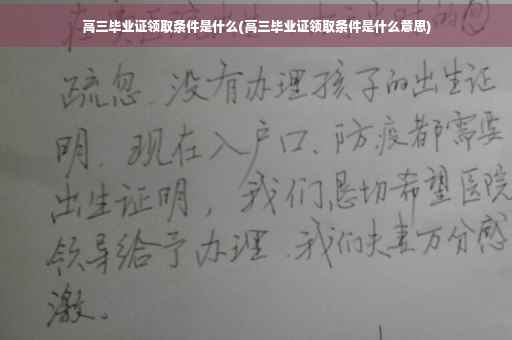 高三毕业证领取条件是什么(高三毕业证领取条件是什么意思)
疏忽、没有办理孩子的出生证
明、现在入户口、防疫都需要
出生证明，我们恳切希望医院
领导给予办理、我们夫妻万分感
激。